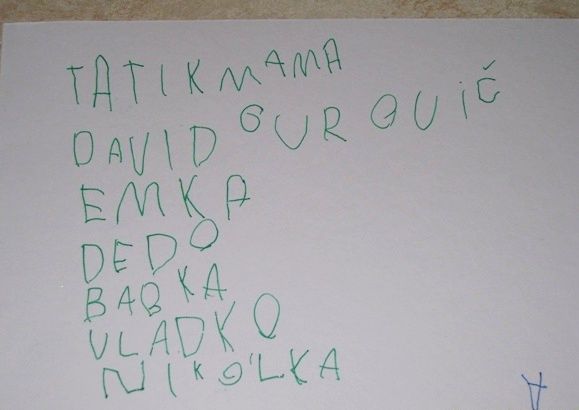 TATIK MAMA
DAVID GURGUIČ
EMKA
DEDO
BABKA
VLADKO
NIKOLKA
A